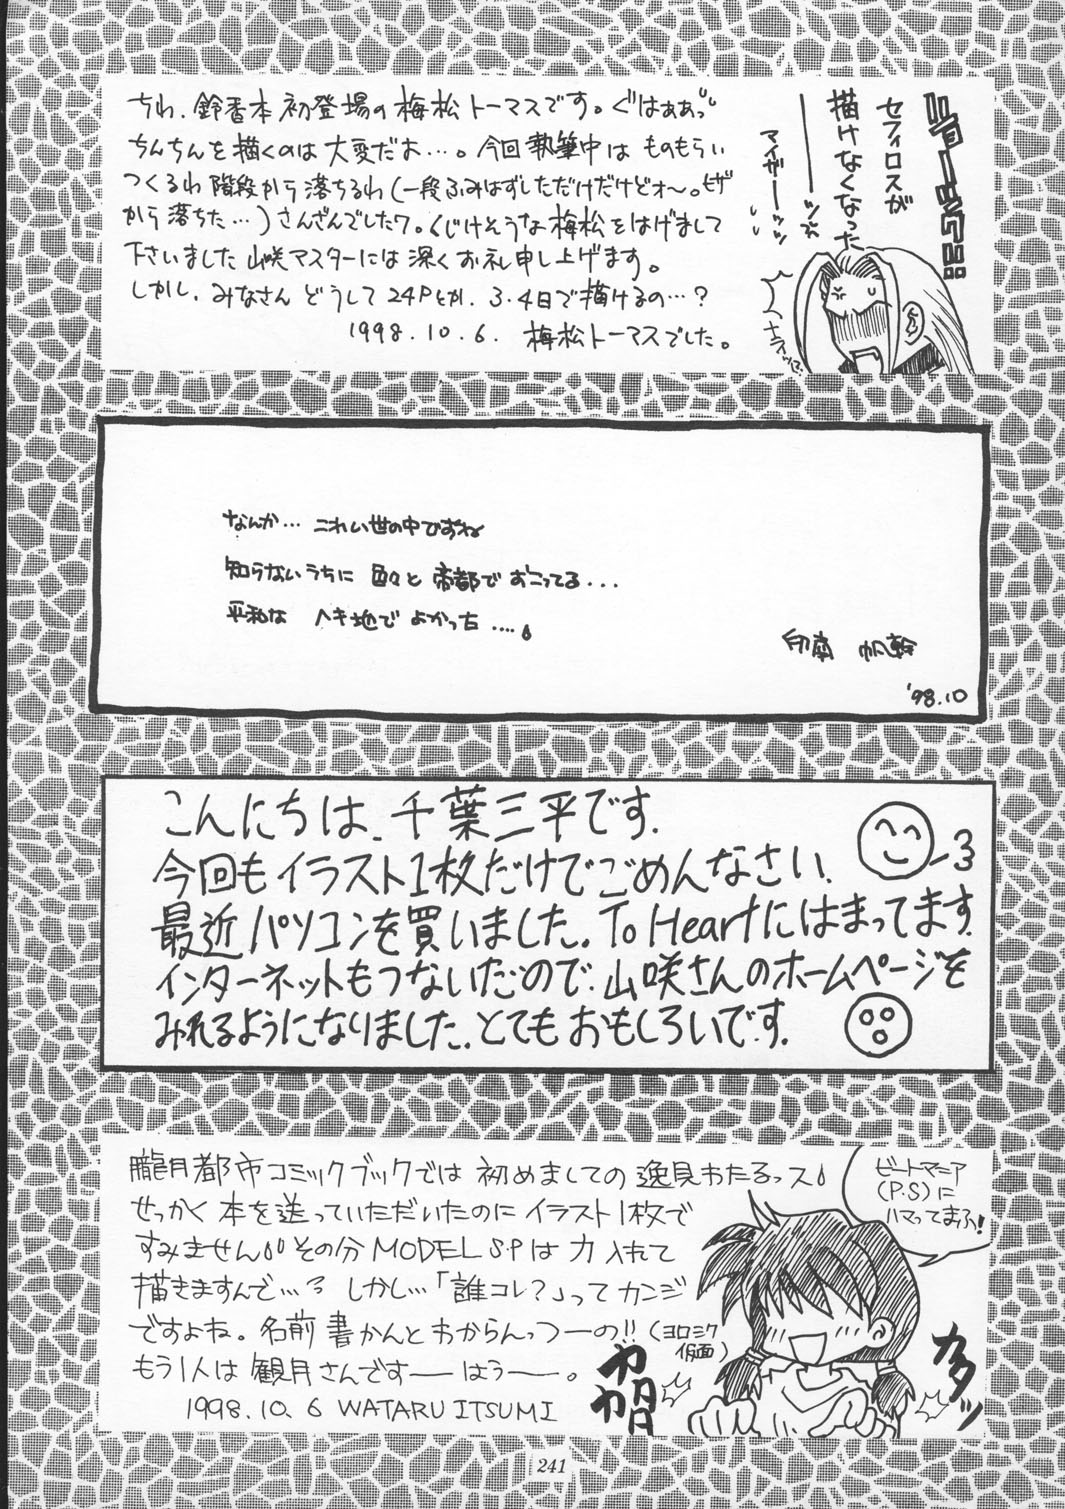 ちわ、鈴香本初登場の梅松トーマスです。ぐはぁぁっ
ちんちんを描くのは大変だお…。今回執筆中はものもらい
つくるわ階段から落ちるわ(一段ふみはずしただけだけどォ〜。ヒザ
から落ちた…)さんざんでしたワ。くじけそうな梅松をはげまして
下さいました山咲マスターには深くお礼申し上げます。
しかし、みなさんどうして24Pとか、3.4日で描けるの…?
1998.10.6. 梅松トーマスでした。
セフィロスが
描けなくなった
マイガーーッッ
なんか… こわい世の中ですね
知らないうちに 色々と 帝都で おこってる...
平和な ヘキ地で よかった ....。
印南 帆幹
'98.10
こんにちは、千葉三平です.
今回もイラスト1枚だけでごめんなさい.
最近パソコンを買いました。To Heartにはまってます.
インターネットもつないだので、山咲さんのホームページを
みれるようになりました.とてもおもしろいです.
朧月都市コミックブックでは初めましての逸見わたるっス
せっかく本を送っていただいたのにイラスト1枚で
すみません その分MODEL S.Pは力入れて
描きますんで…? しかし…「誰コレ?」ってカンジ
ですよね。名前書かんとわからんっつーの!!(ヨロシク仮面)
もう1人は観月さんですーはぅー。
1998.10.6 WATARU ITSUMI
ビートマニア
(P.S)に
ハマってまふ!
カカカカ
カタッ
241